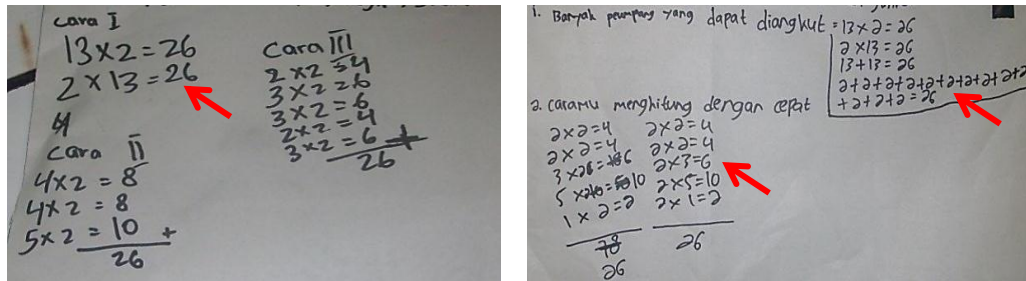 Cara I
13×2=26
2×13=26
Cara II
4×2=8
4×2=8
5×2=10 +
26
Cara III
2×2=4
3×2=6
3×2=6
2×2=4
3×2=6 +
26
1. Banyak penumpang yang dapat diangkut = 13×2=26
2×13=26
13+13=26
2+2+2+2+2+2+2+2+2+2
+2+2+2=26
2. Caramu menghitung dengan cepat
2×2=4
2×2=4
3×2=6
5×2=10
1×2=2
26
2×2=4
2×2=4
2×3=6
2×5=10
2×1=2
26